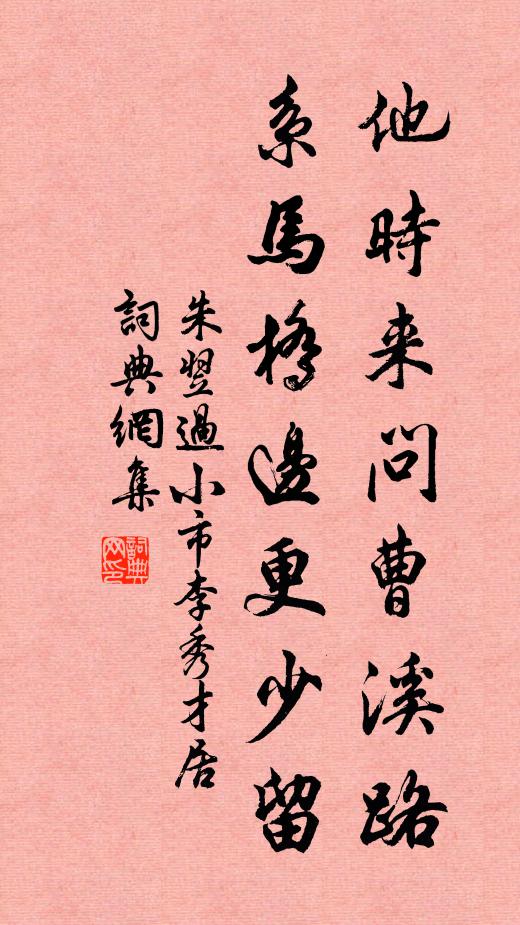 他時来問曹溪路
系馬橋邊更少留
朱翌過小市李秀才居
詞典網集
詞典網印